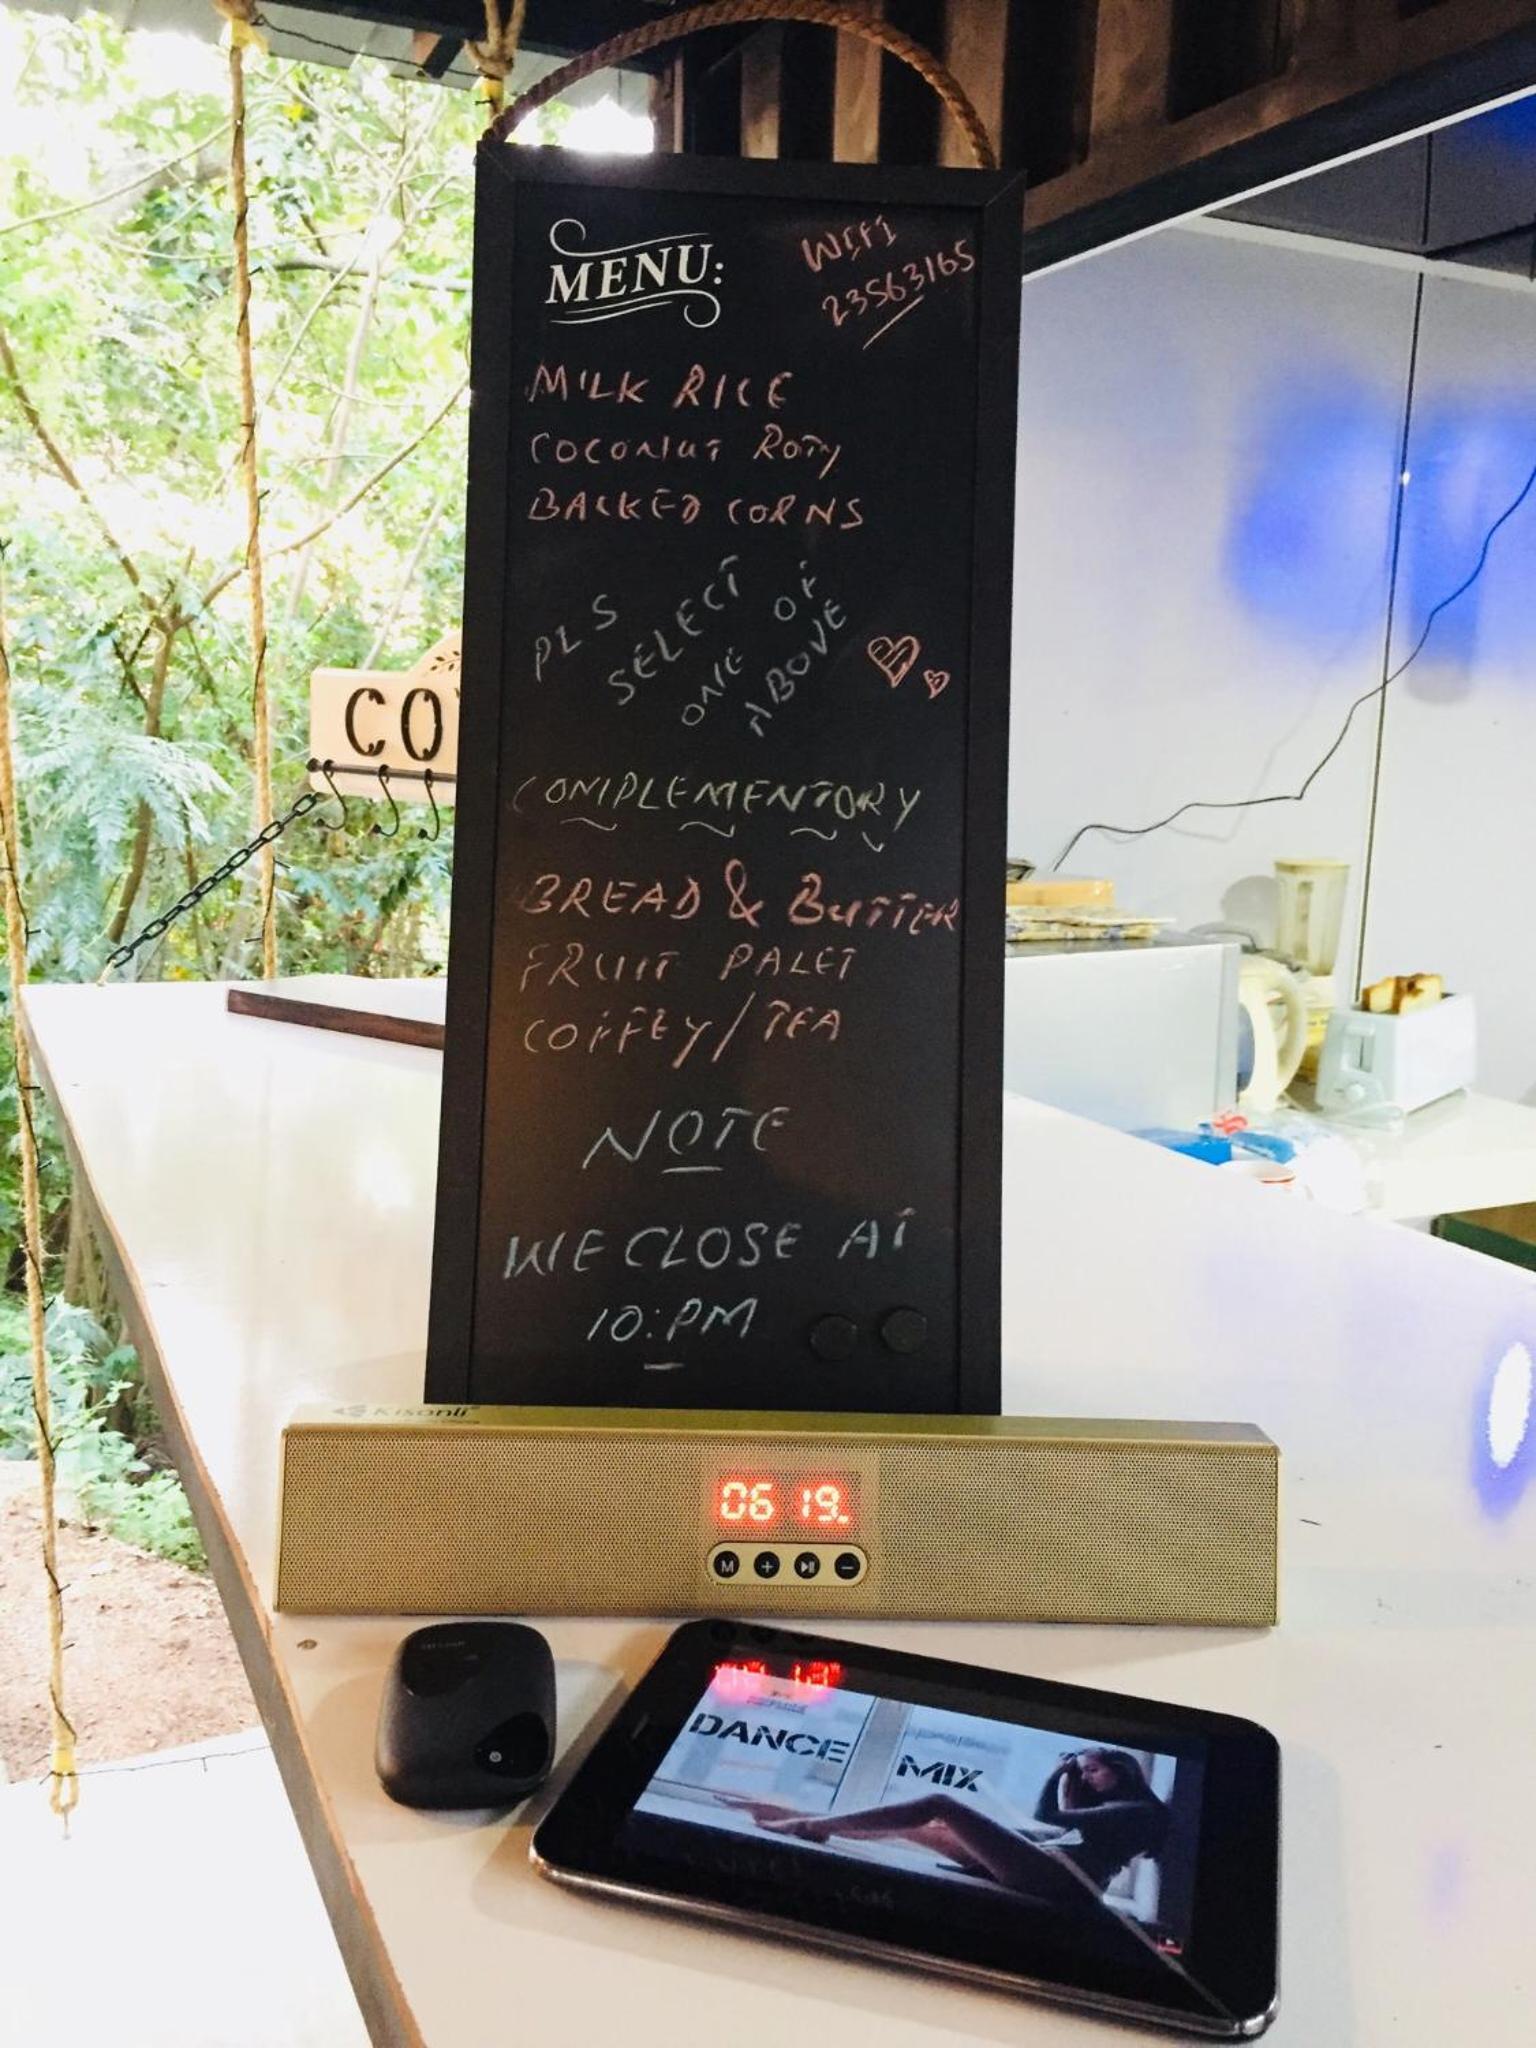 MENU:
WIFI
23563165
MILK RICE
COCONUT ROTY
BACKED CORNS
PLS SELECT
ONE OF
ABOVE
COMPLEMENTORY
BREAD & BUTTER
FRUIT PALET
COFFEY/TEA
NOTE
WE CLOSE AT
10:PM
CO
Kisonli
06 19
M + -
DANCE MIX